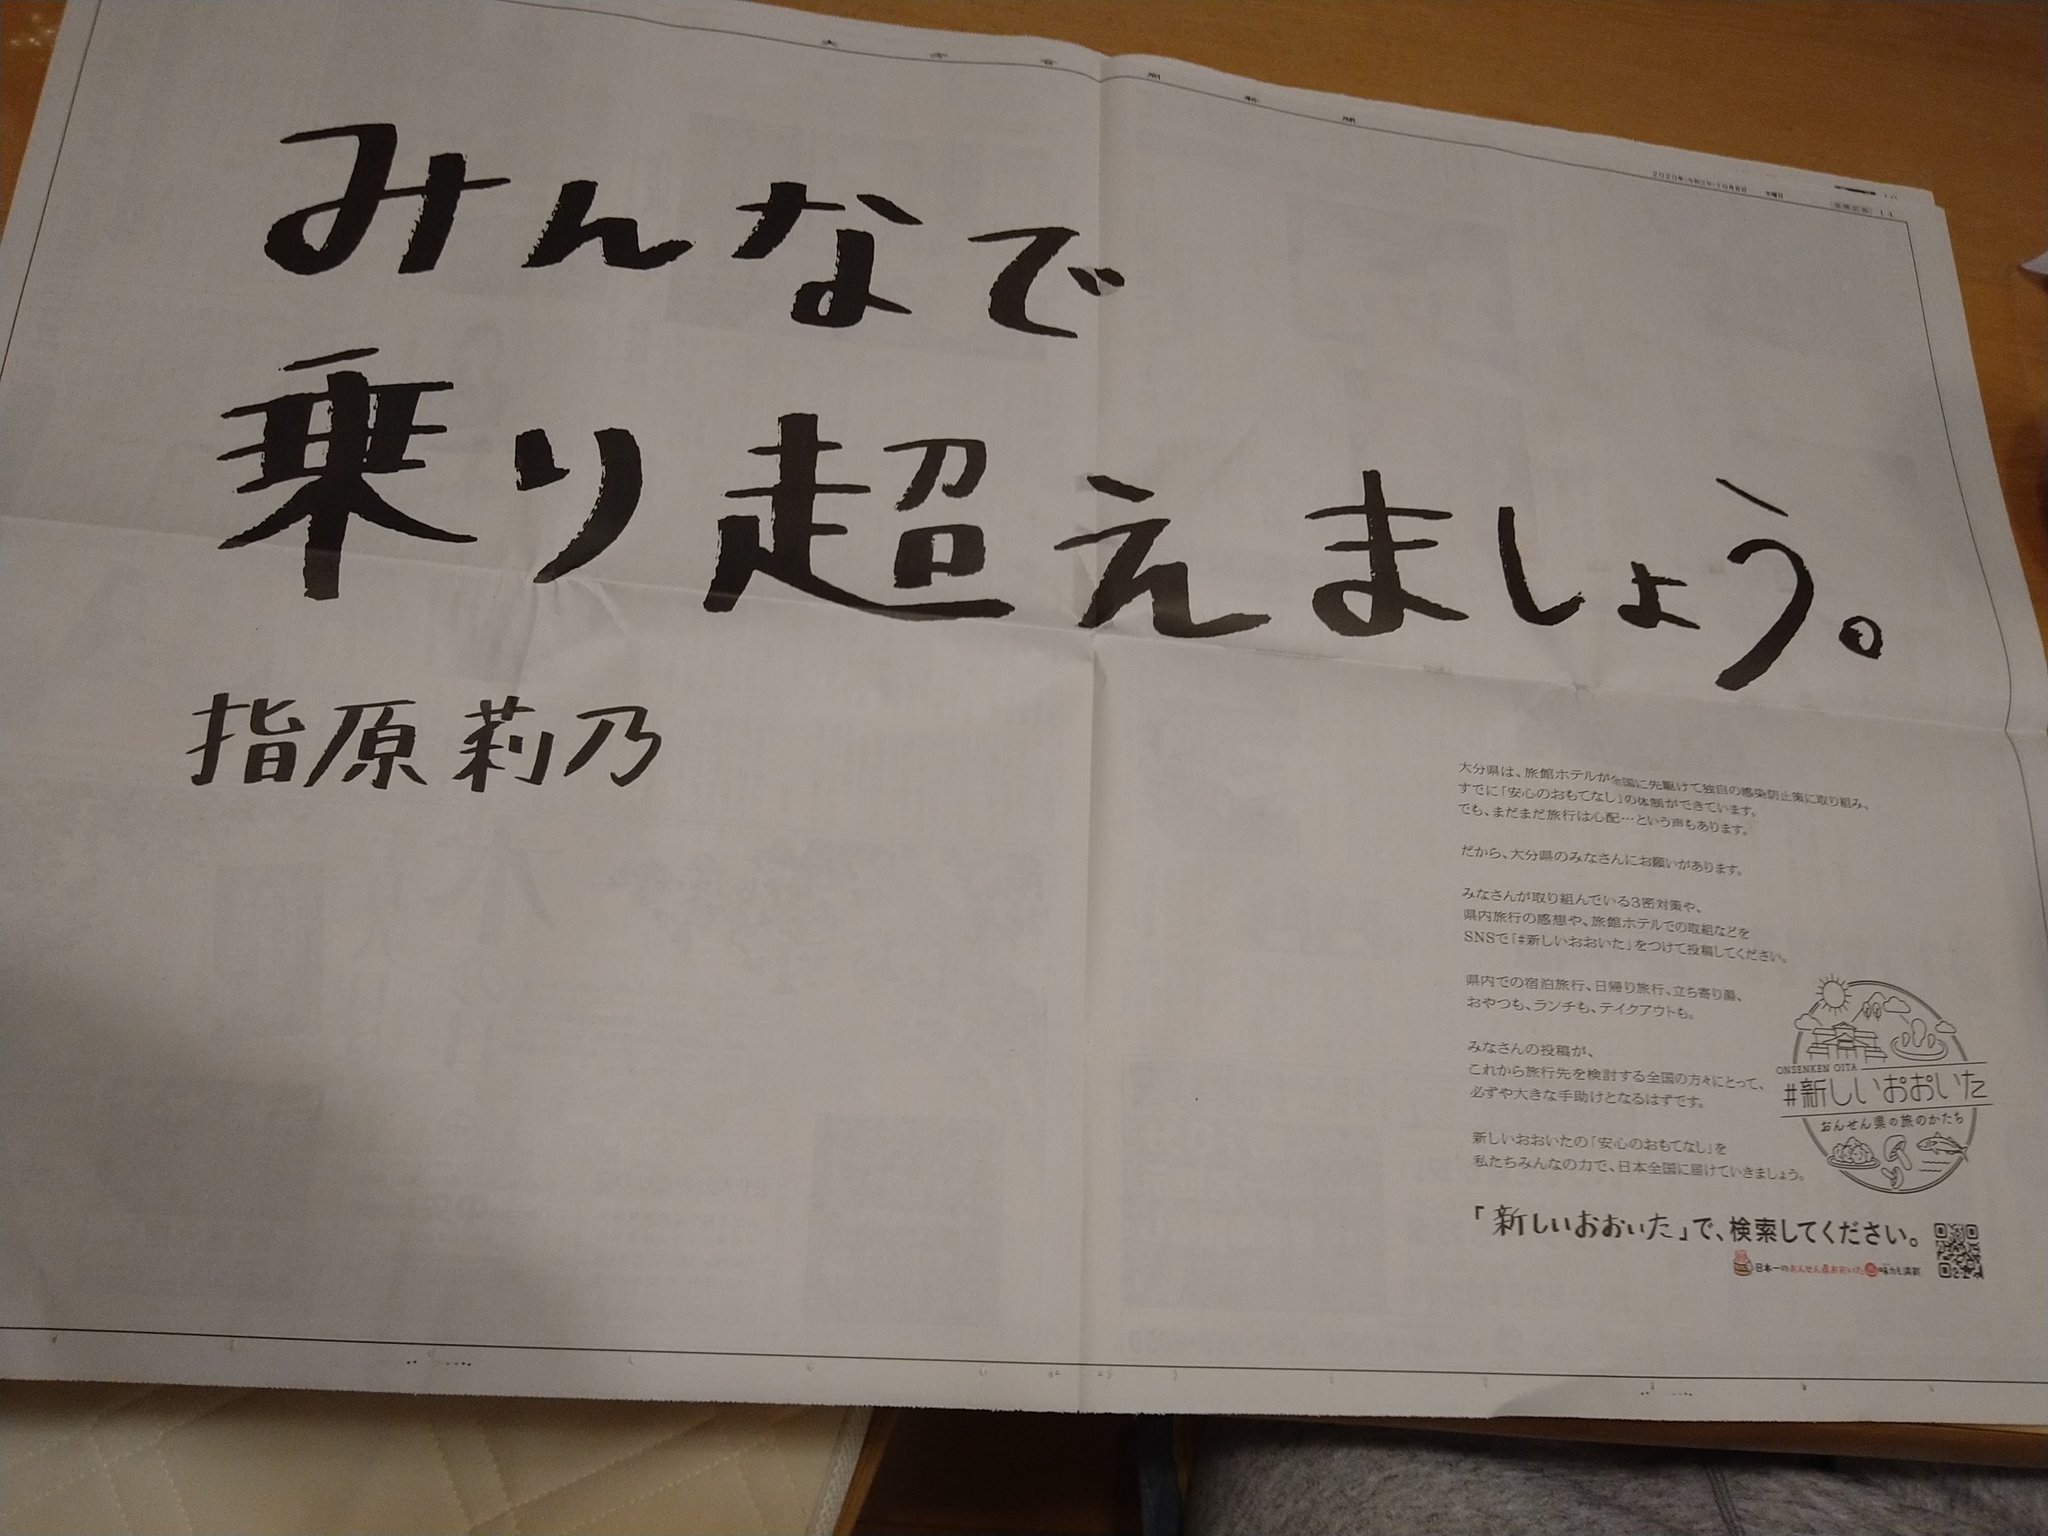 大分合同新聞
2020年(令和2年)10月8日 木曜日
みんなで
乗り超えましょう。
指原莉乃
大分県は、旅館ホテルが全国に先駆けて独自の感染防止策に取り組み、
すでに「安心のおもてなし」の体制ができています。
でも、まだまだ旅行は心配…という声もあります。
だから、大分県のみなさんにお願いがあります。
みなさんが取り組んでいる3密対策や、
県内旅行の感想や、旅館ホテルでの取組などを
SNSで「#新しいおおいた」をつけて投稿してください。
県内での宿泊旅行、日帰り旅行、立ち寄り湯、
おやつも、ランチも、テイクアウトも。
みなさんの投稿が、
これから旅行先を検討する全国の方々にとって、
必ずや大きな手助けとなるはずです。
新しいおおいたの「安心のおもてなし」を
私たちみんなの力で、日本全国に届けていきましょう。
ONSENKEN OITA
#新しいおおいた
おんせん県の旅のかたち
「新しいおおいた」で、検索してください。
日本一のおんせん県おおいた♨味力も満載